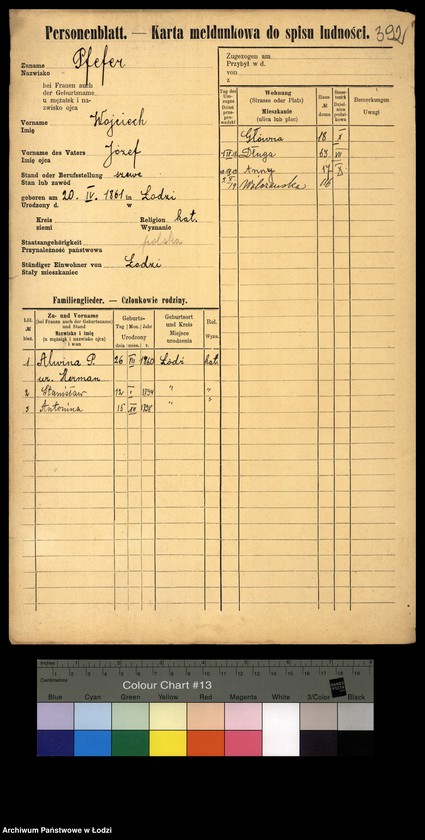 Personenblatt. — Karta meldunkowa do spisu ludności. 392
Zuname
Nazwisko
Pfefer
bei Frauen auch
der Geburtsname
u mężatek i na-
zwisko ojca
Vorname
Imię
Wojciech
Vorname des Vaters
Imię ojca
Józef
Stand oder Berufsstellung
Stan lub zawód
szewc
geboren am 20. IV. 1861 in Lodzi
Urodzony d. w
Kreis
ziemi
Religion kat.
Wyznanie
Staatsangehörigkeit
Przynależność państwowa
polska
Ständiger Einwohner von
Stały mieszkaniec
Lodzi
Zugezogen am
Przybył w d.
von
z
Tag des Um-
zuges
Dzień
prze-
prowadzki
Wohnung
(Strasse oder Platz)
Mieszkanie
(ulica lub plac)
Haus-
№
domu
Bemerkungen
Uwagi
Główna 18 X
Długa 63 VII
Anny 17 X
116
Familienglieder. — Członkowie rodziny.
Lfd.
№
bież.
Zu- und Vorname
(bei Frauen auch der Geburtsname)
und Stand
Nazwisko i imię
(u mężatek i nazwisko ojca)
i stan
Geburts-
Tag Mon. Jahr
Urodzony
dnia mies. r.
Geburtsort
und Kreis
Miejsce
urodzenia
Rel.
Wyzn.
1 Alwina P. 26 III Lódź kat.
ur. Herman
2 Stanisław 12 I " "
3 Antonina 15 " "
Inches
Centimetres
Colour Chart #13
Blue Cyan Green Yellow Red Magenta White 3/Color Black
Archiwum Państwowe w Łodzi